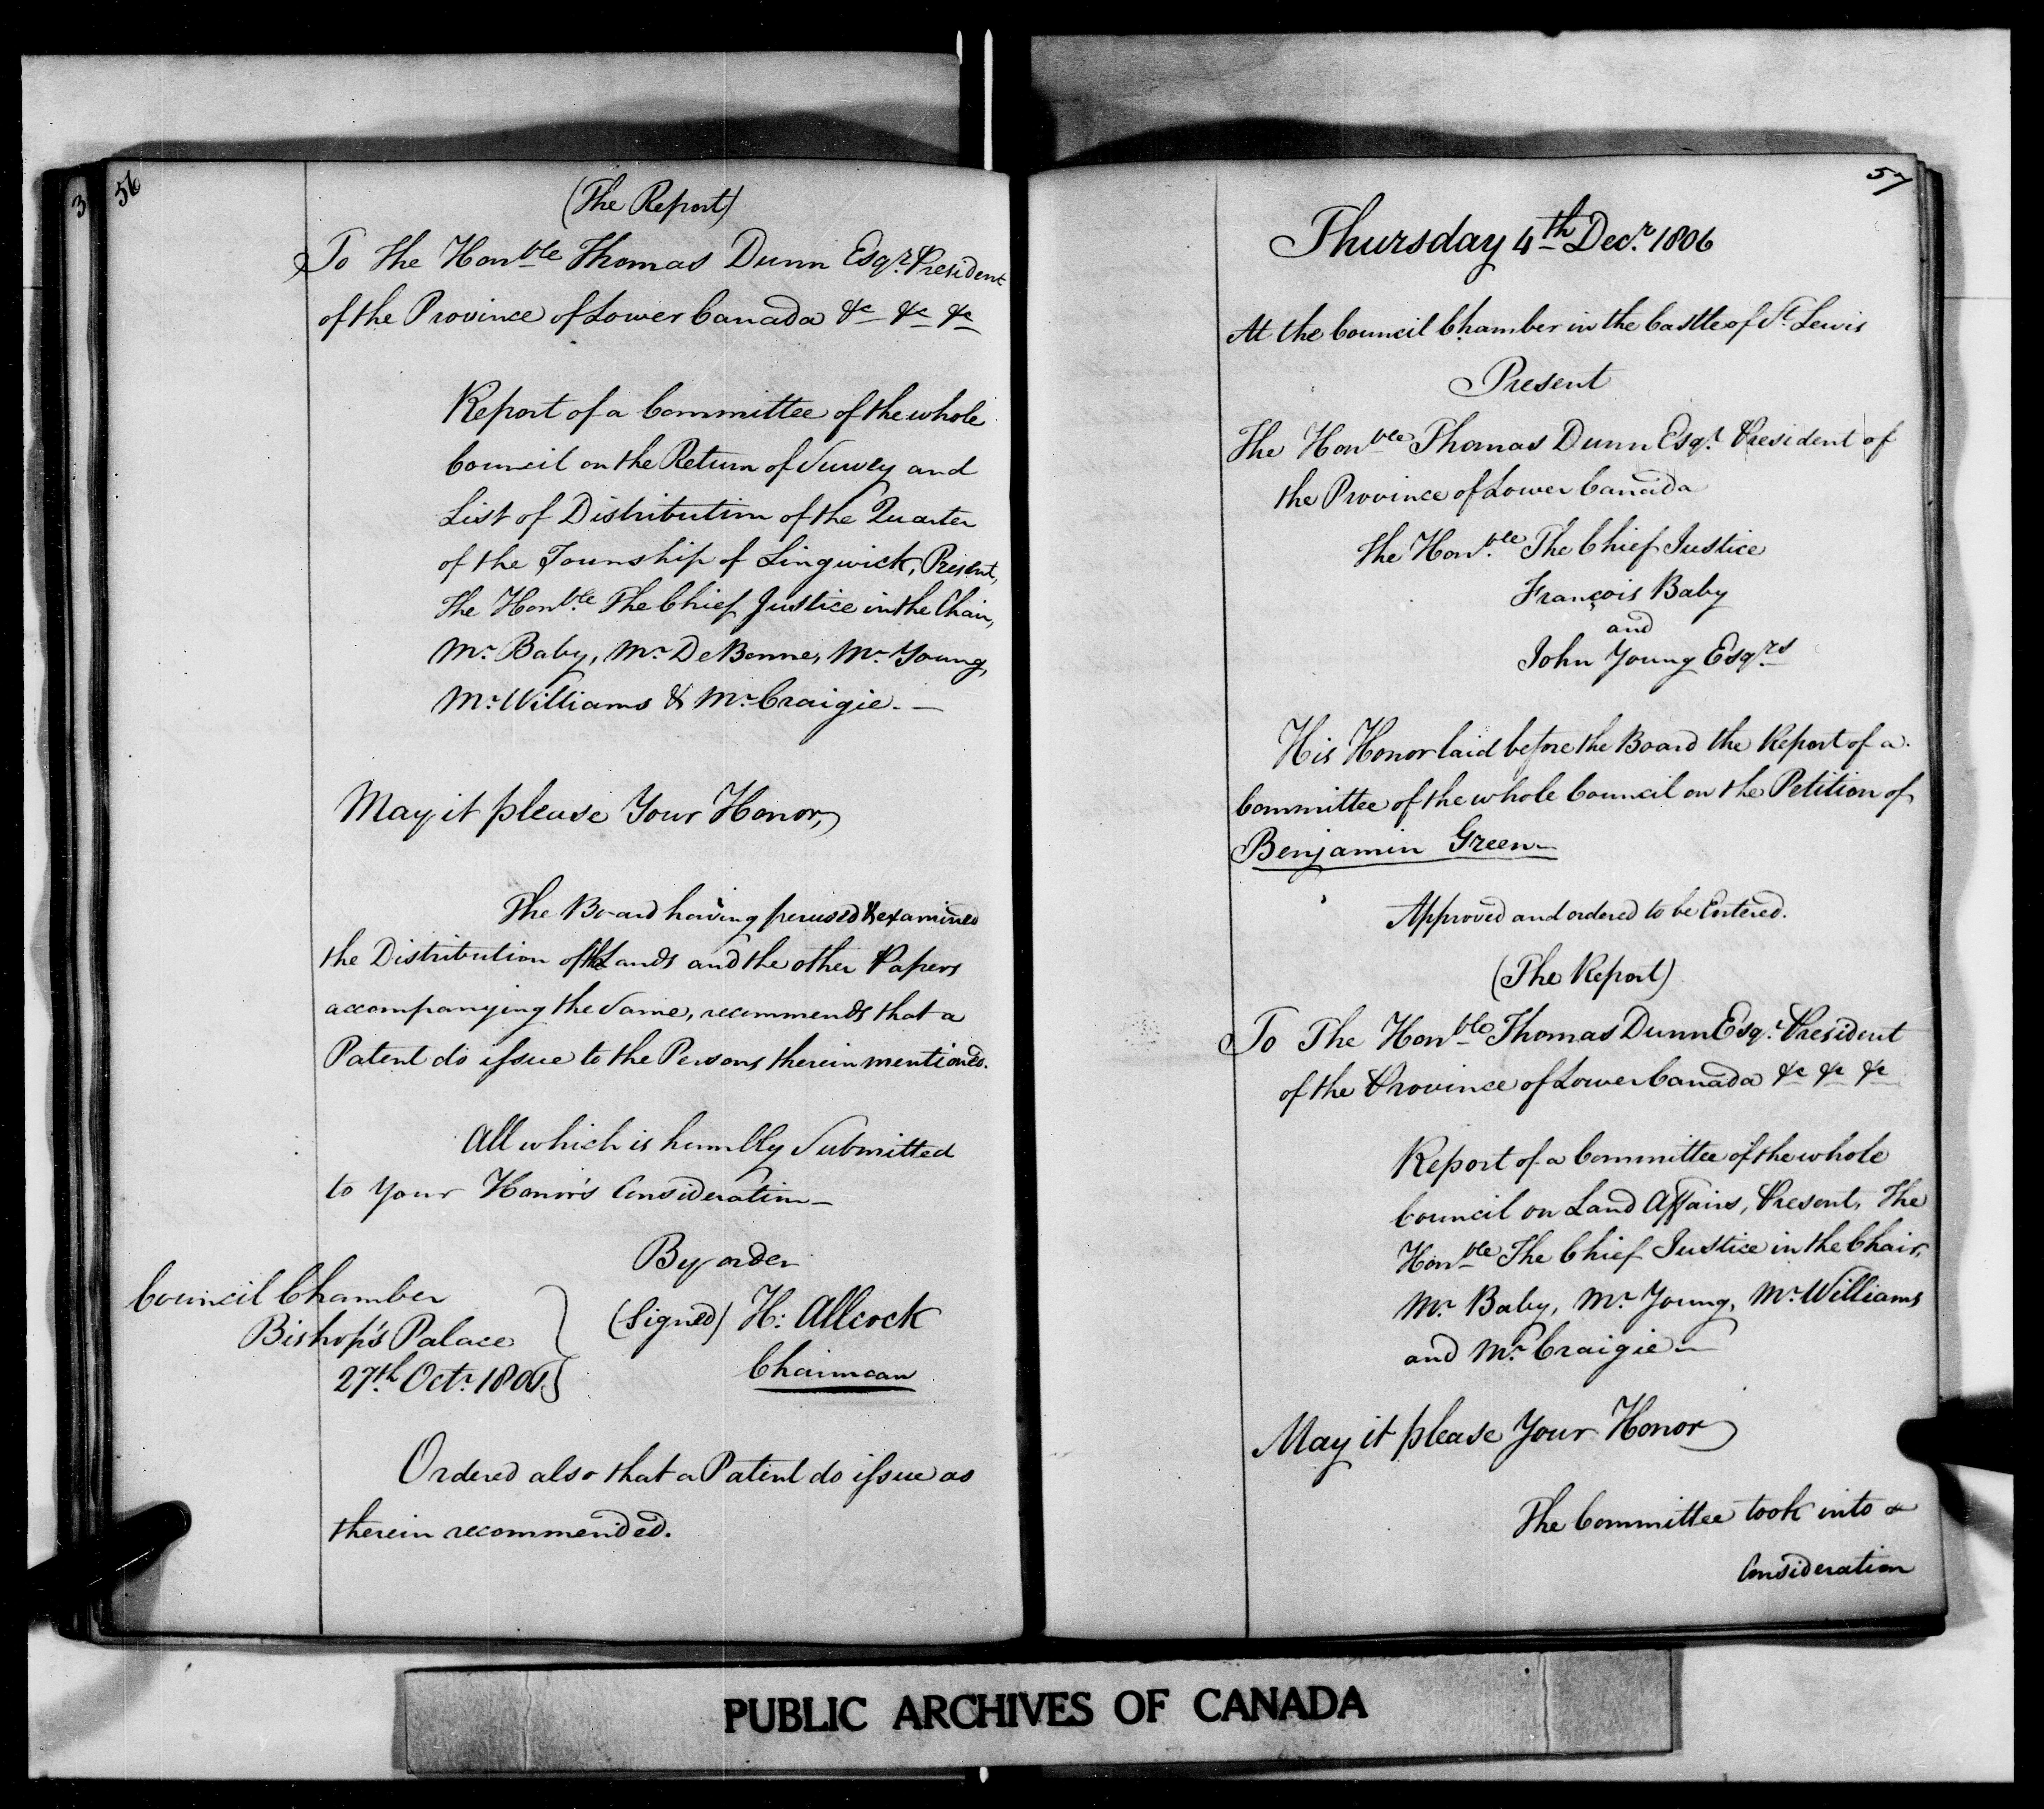 3
56
(The Report)
To The Honble Thomas Dunn Esqr. President
of the Province of Lower Canada &c &c &c
Report of a Committee of the whole
Council on the Return of Survey and
List of Distribution of the Quarter
of the Township of Lingwick, Present,
The Honble. The Chief Justice in the Chair,
Mr. Baby, Mr. DeBonne, Mr. Young,
Mr. Williams & Mr. Craigie. —
May it please Your Honor,
The Board having perused & examined
the Distribution of the Lands and the other Papers
accompanying the Same, recommends that a
Patent do issue to the Persons therein mentioned.
All which is humbly Submitted
to Your Honor's Consideration —
By order
(Signed) H: Allcock
Chairman
Council Chamber
Bishop's Palace
27th. Octr. 1806.
Ordered also that a Patent do issue as
therein recommended.
57
Thursday 4th Decr. 1806
At the Council Chamber in the Castle of St. Lewis
Present
The Honble Thomas Dunn Esqr. President of
the Province of Lower Canada
The Honble. The Chief Justice
François Baby
and
John Young Esqrs
His Honor laid before the Board the Report of a
Committee of the whole Council on the Petition of
Benjamin Green —
Approved and ordered to be Entered.
(The Report)
To The Honble Thomas Dunn Esqr. President
of the Province of Lower Canada &c &c &c
Report of a Committee of the whole
Council on Land Affairs, Present, The
Honble The Chief Justice in the Chair,
Mr. Baby, Mr. Young, Mr. Williams
and Mr. Craigie —
May it please Your Honor
The Committee took into
Consideration
PUBLIC ARCHIVES OF CANADA